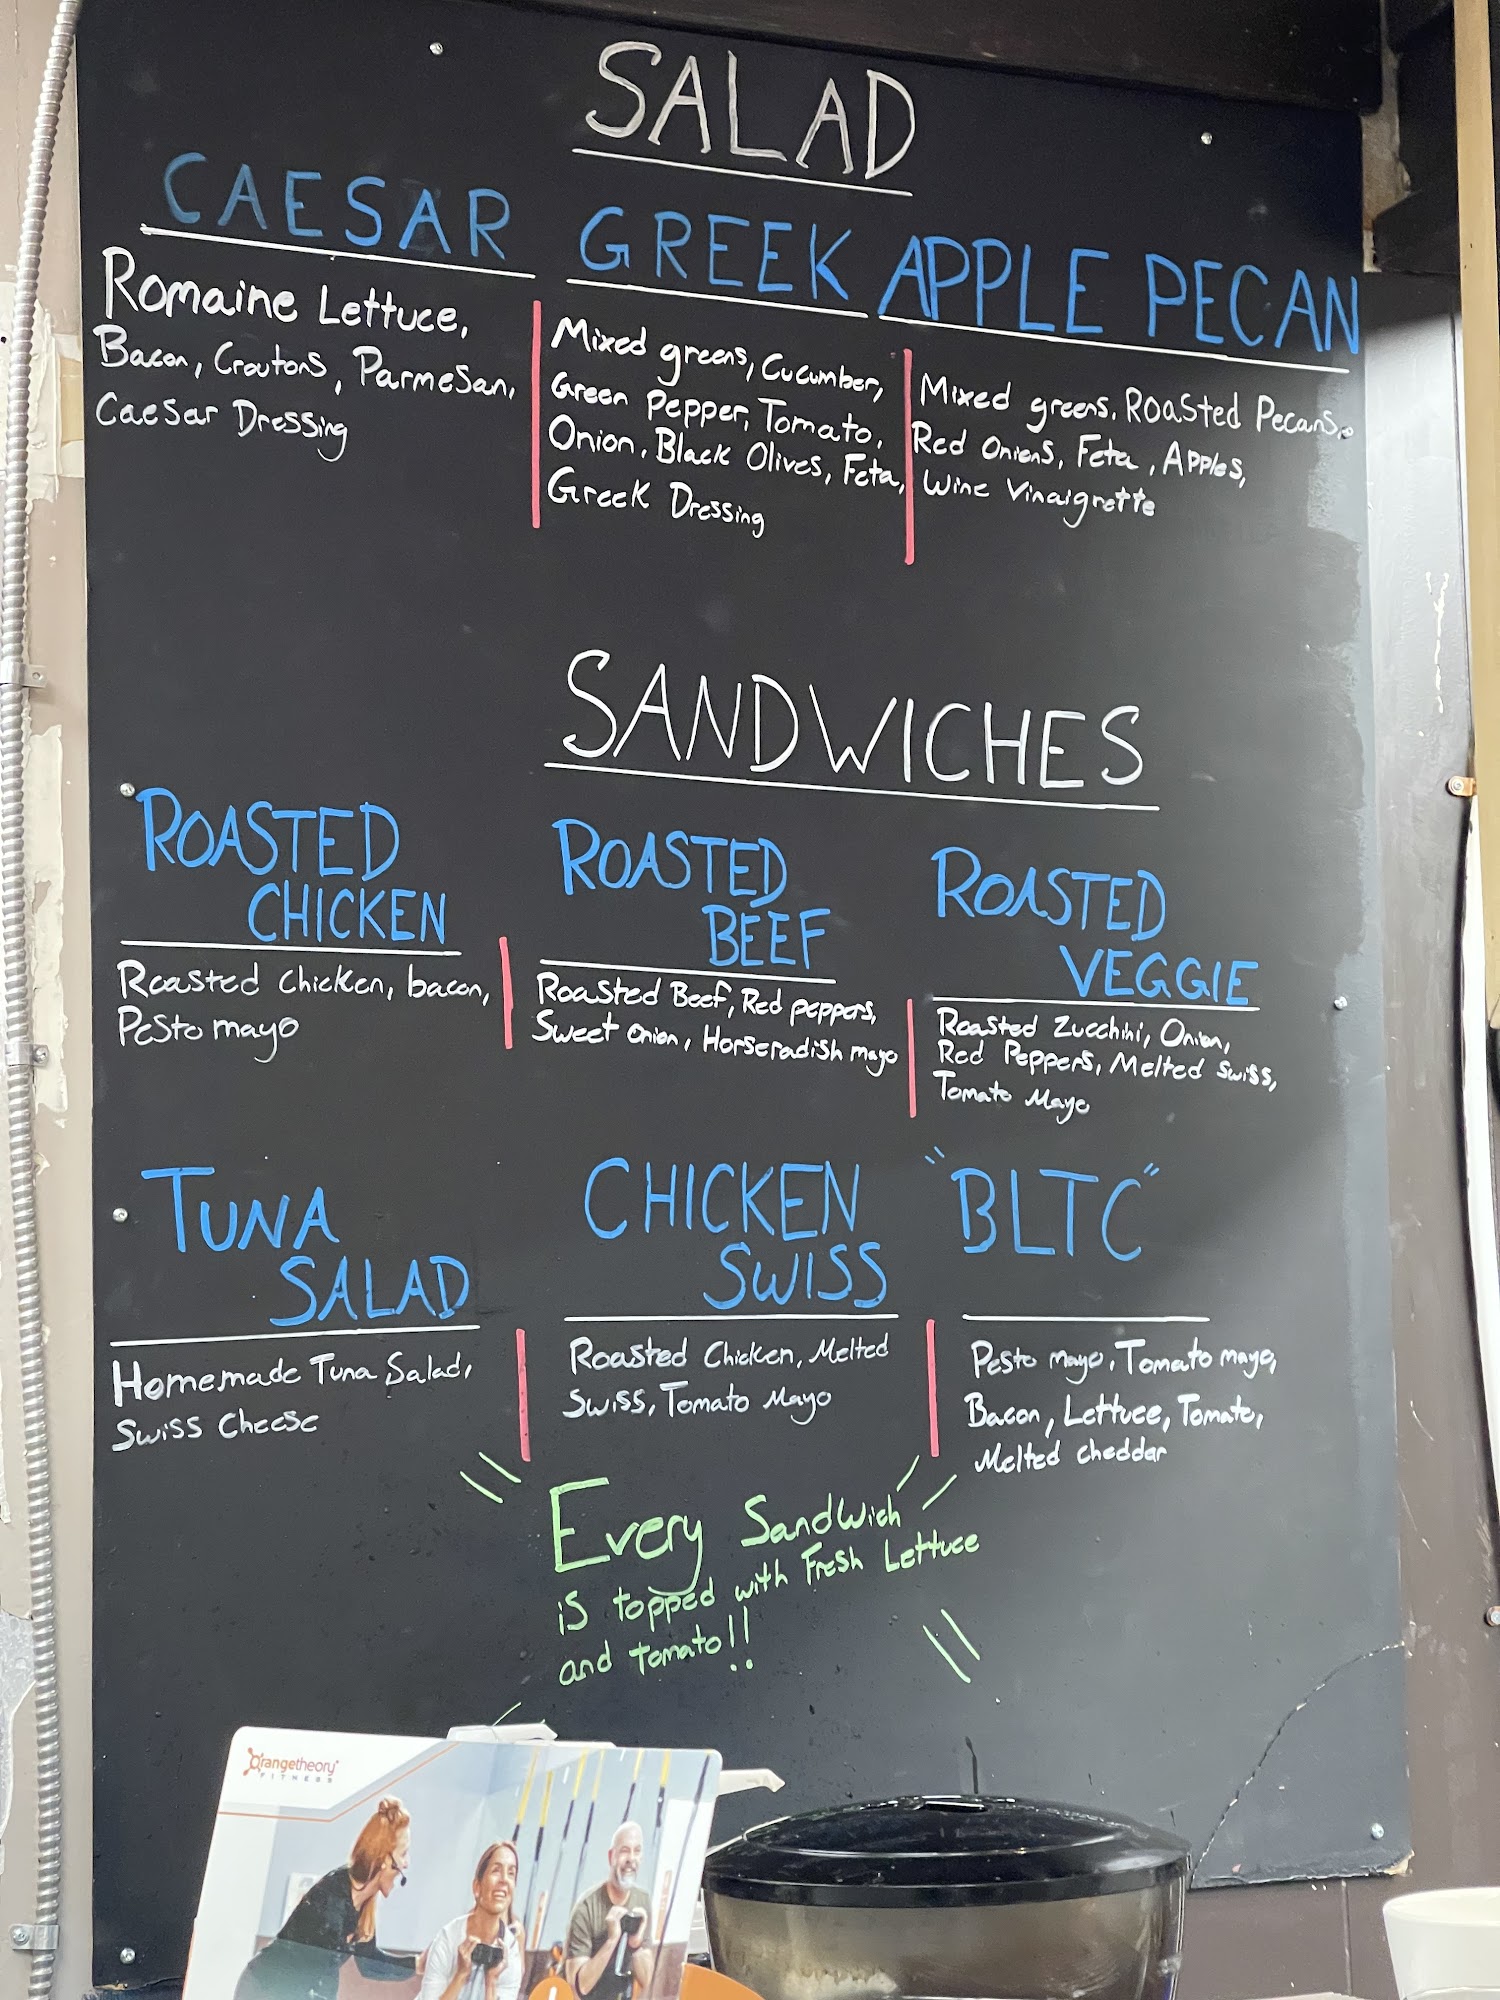 SALAD
CAESAR
Romaine Lettuce,
Bacon, Croutons, Parmesan,
Caesar Dressing
GREEK
Mixed greens, Cucumber,
Green Pepper, Tomato,
Onion, Black Olives, Feta,
Greek Dressing
APPLE PECAN
Mixed greens, Roasted Pecans,
Red Onions, Feta, Apples,
Wine Vinaigrette
SANDWICHES
ROASTED
CHICKEN
Roasted Chicken, bacon,
Pesto mayo
ROASTED
BEEF
Roasted Beef, Red peppers,
Sweet onion, Horseradish mayo
ROASTED
VEGGIE
Roasted Zucchini, Onion,
Red Peppers, Melted Swiss,
Tomato Mayo
TUNA
SALAD
Homemade Tuna Salad,
Swiss Cheese
CHICKEN
SWISS
Roasted Chicken, Melted
Swiss, Tomato Mayo
"BLTC"
Pesto mayo, Tomato mayo,
Bacon, Lettuce, Tomato,
Melted cheddar
Every Sandwich
is topped with Fresh Lettuce
and tomato!!
Orangetheory
FITNESS